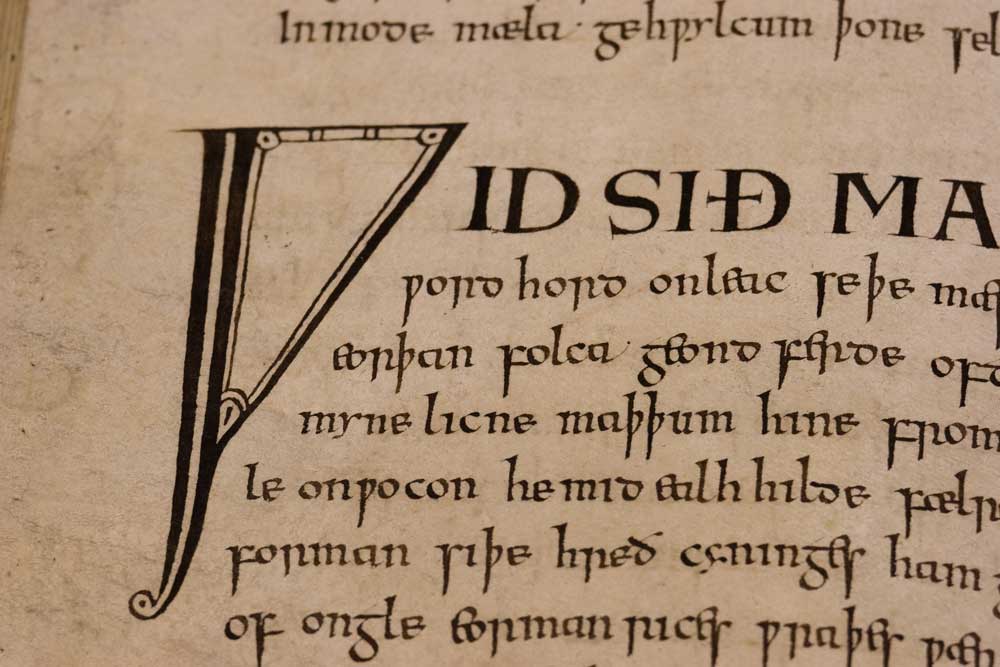 Inmode mæla· gehƿylcum þone sel
ǷID SIÐ MA
ƿord hord onleac seþe mæ
eorþan folca· geond ferde oft
myne licne maþþum hine from
le onƿocon he mid ealh hilde fælr
forman siþe hreð cyninges ham
of ongle eorman rices ƿraþes ƿær